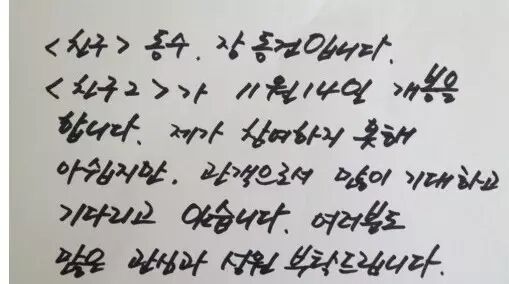 <친구> 동수. 장동건입니다.
<친구2>가 11월14일 개봉을
합니다. 제가 참여하지 못해
아쉽지만. 관객으로서 많이 기대하고
기다리고 있습니다. 여러분도
많은 관심과 성원 부탁드립니다.